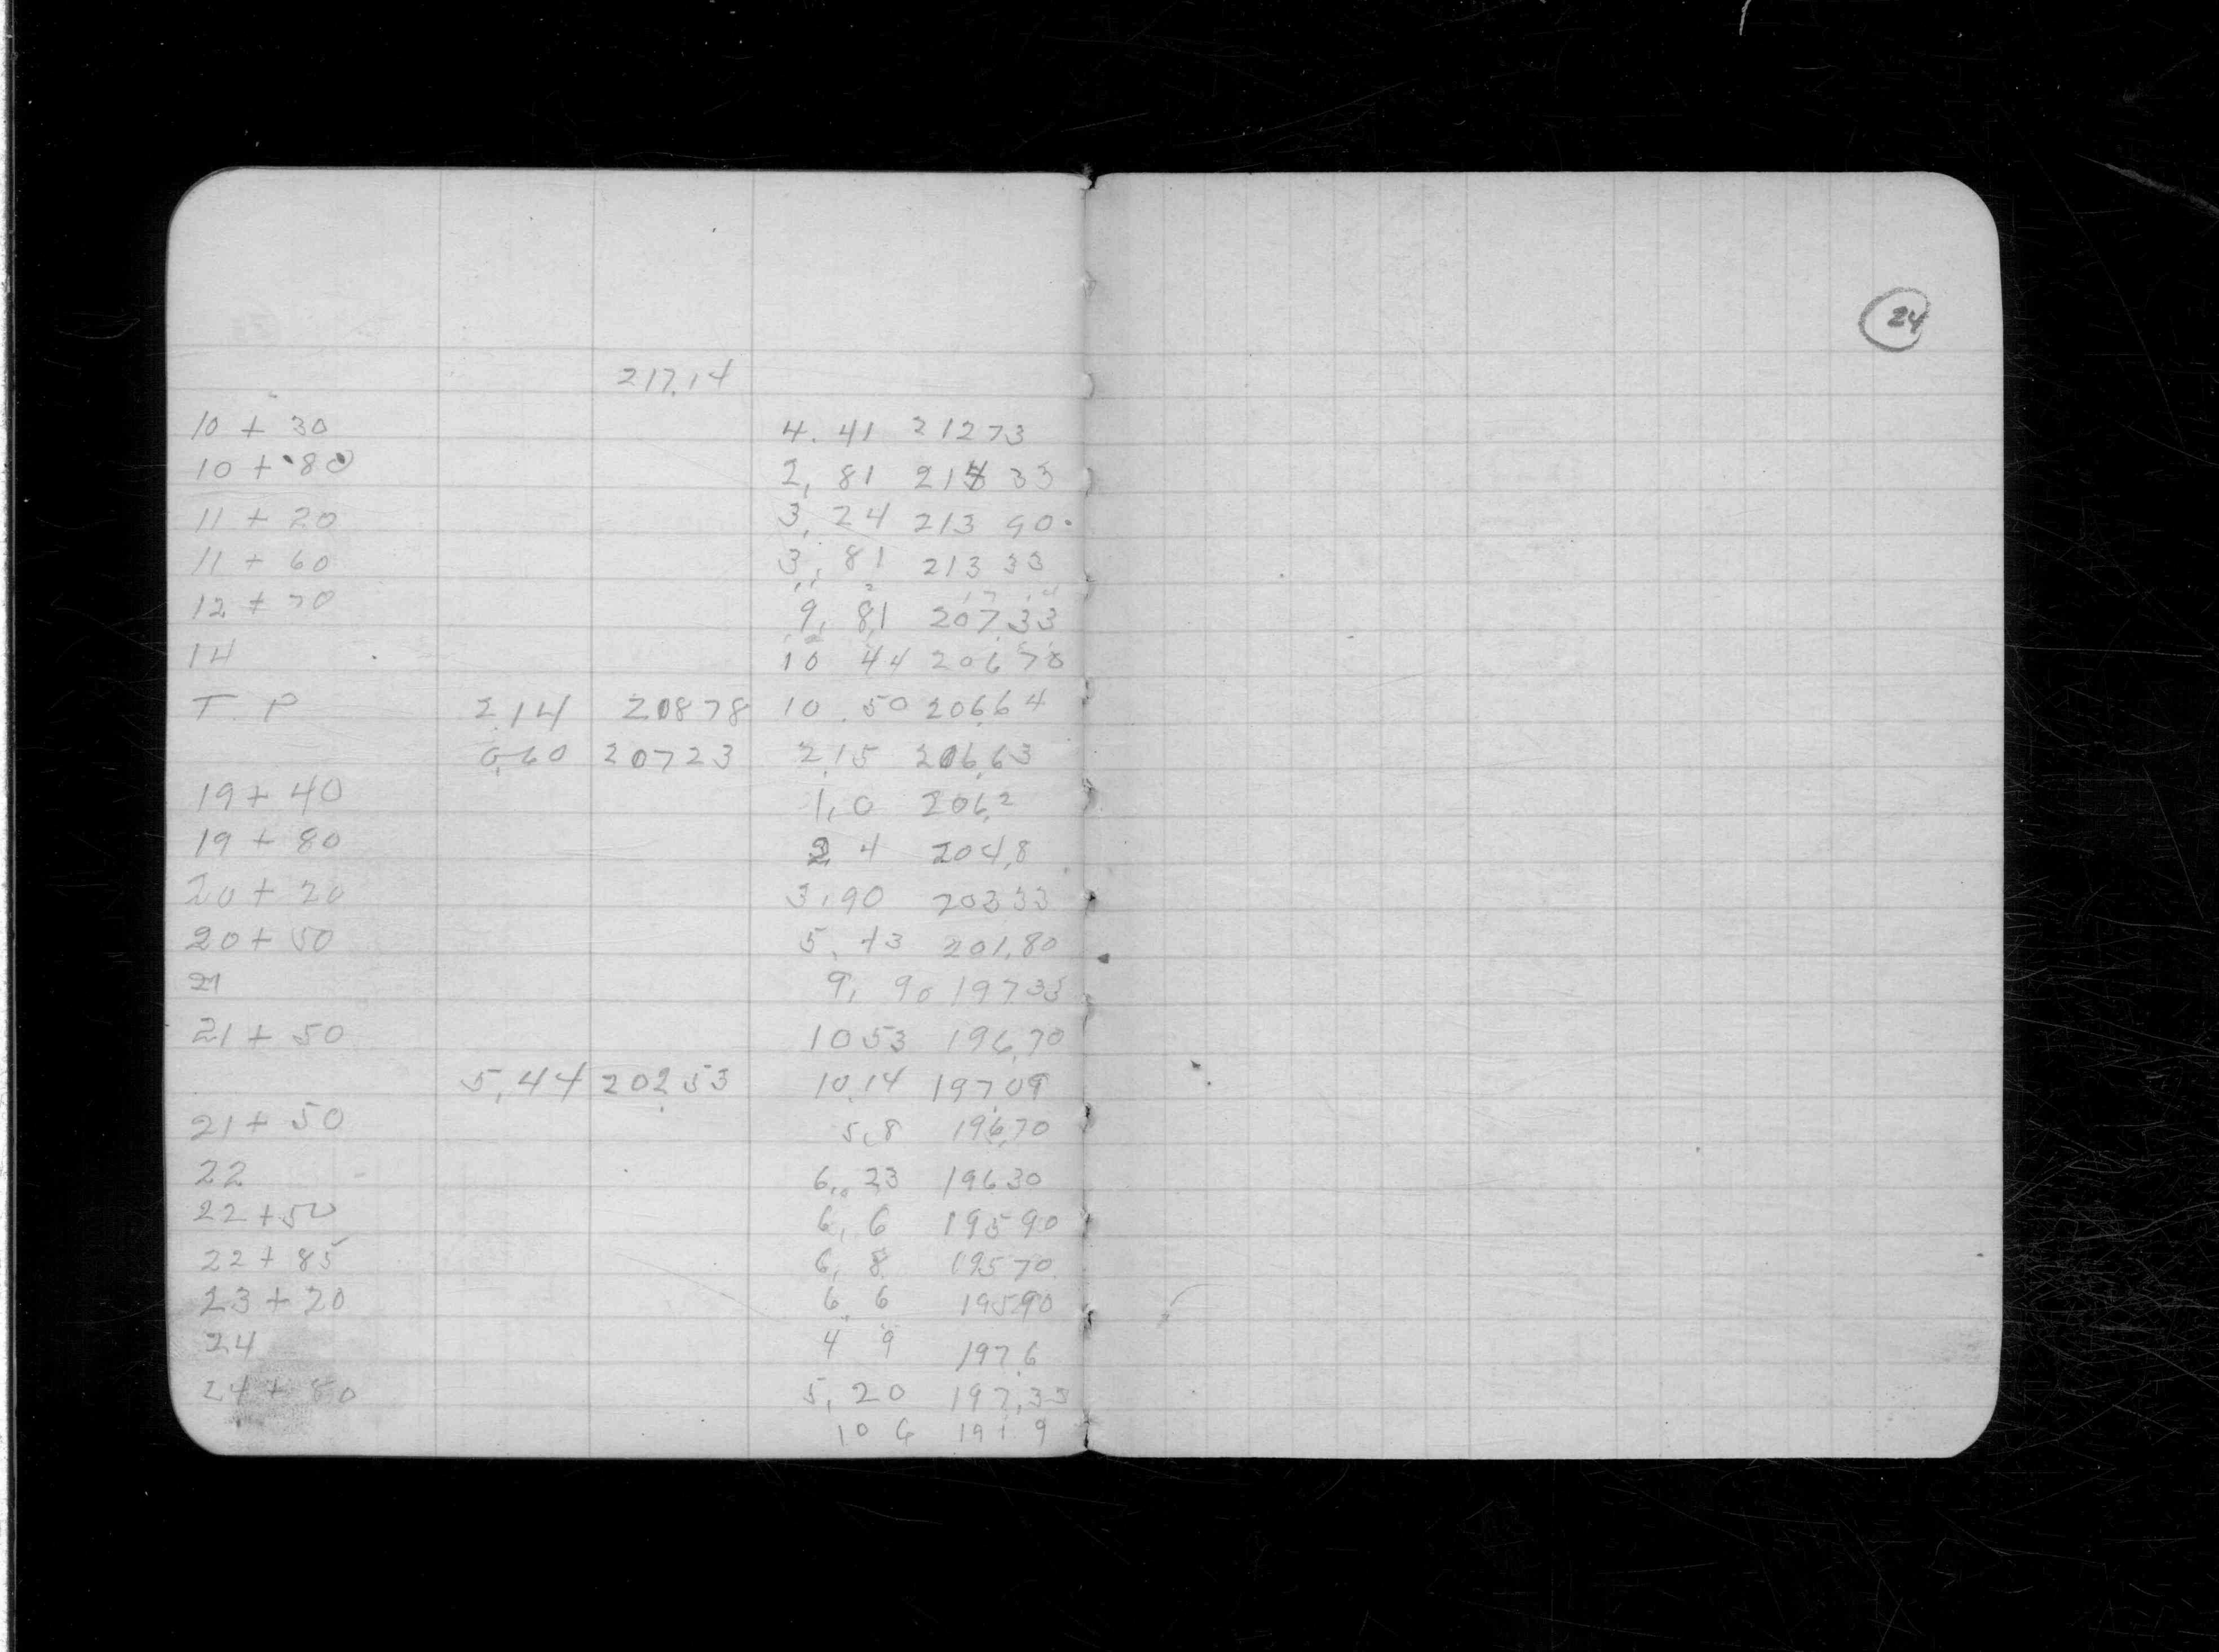 24
217.14
10 + 30 4.41 21273
10 + 80 2,81 214 33
11 + 20 3,24 213 90
11 + 60 3,81 213 33
12 + 70 9,81 207.33
14 10 44 206 70
T. P 2.14 20878 10.50 206.64
0,60 20723 2,15 206,63
19 + 40 1,0 206,2
19 + 80 2 4 204,8
20 + 20 3,90 20333
20 + 50 5,43 201,80
21 9,90 19733
21 + 50 1053 196,70
5,44 202.53 10.14 197.09
21 + 50 5,8 196,70
22 6,23 19630
22 + 50 6,6 19590
22 + 85 6,8 19570
23 + 20 6.6 19590
24 4 9 197.6
24 + 5,20 197,33
10 6 191 9